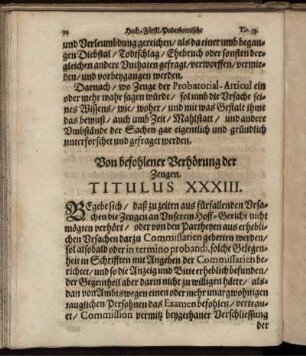 74 Hoch-Fürstl. Paderbornische Tit. 33.
und Verleumbdung gereichen/ als da einer umb began-
gen Diebstal/ Todtschlag/ Ehebruch oder sonsten der-
gleichen andere Unthaten gefragt/ verworffen/ vermie-
den/ und vorbeygangen werden.
Darnach/ wo Zeuge der Probatorial-Articul ein
oder mehr wahr sagen würde/ sol umb die Ursache sei-
nes Wissens/ wie/ woher/ und mit was Gestalt ihme
das bewust/ auch umb Zeit/ Mahlstatt/ und andere
Umbstände der Sachen gar eigentlich und gründlich
unterforschet und gefraget werden.
Von befohlener Verhörung der
Zeugen.
TITULUS XXXIII.
BEgebe sich/ daß zu zeiten aus fürfallenden Ursa-
chen die Zeugen an Unserem Hoff-Gericht nicht
mögten verhört/ oder von den Partheyen aus erheb-
lichen Ursachen darzu Commissarien gebetten werden/
sol alsobald oder in termino probandi, solche Gelegen-
heit in Schrifften mit Angeben der Commissarien be-
richtet/ und so die Anzeig und Bitte erheblich befunden/
der Gegentheil aber darin nicht zu willigen hätte/ als-
dan von Ambts wegen einen oder mehr unargwohnigen
tauglichen Persohnen das Examen befohlen/ vertrau-
et/ Commission vermitz beygethaner Verschliessung
der